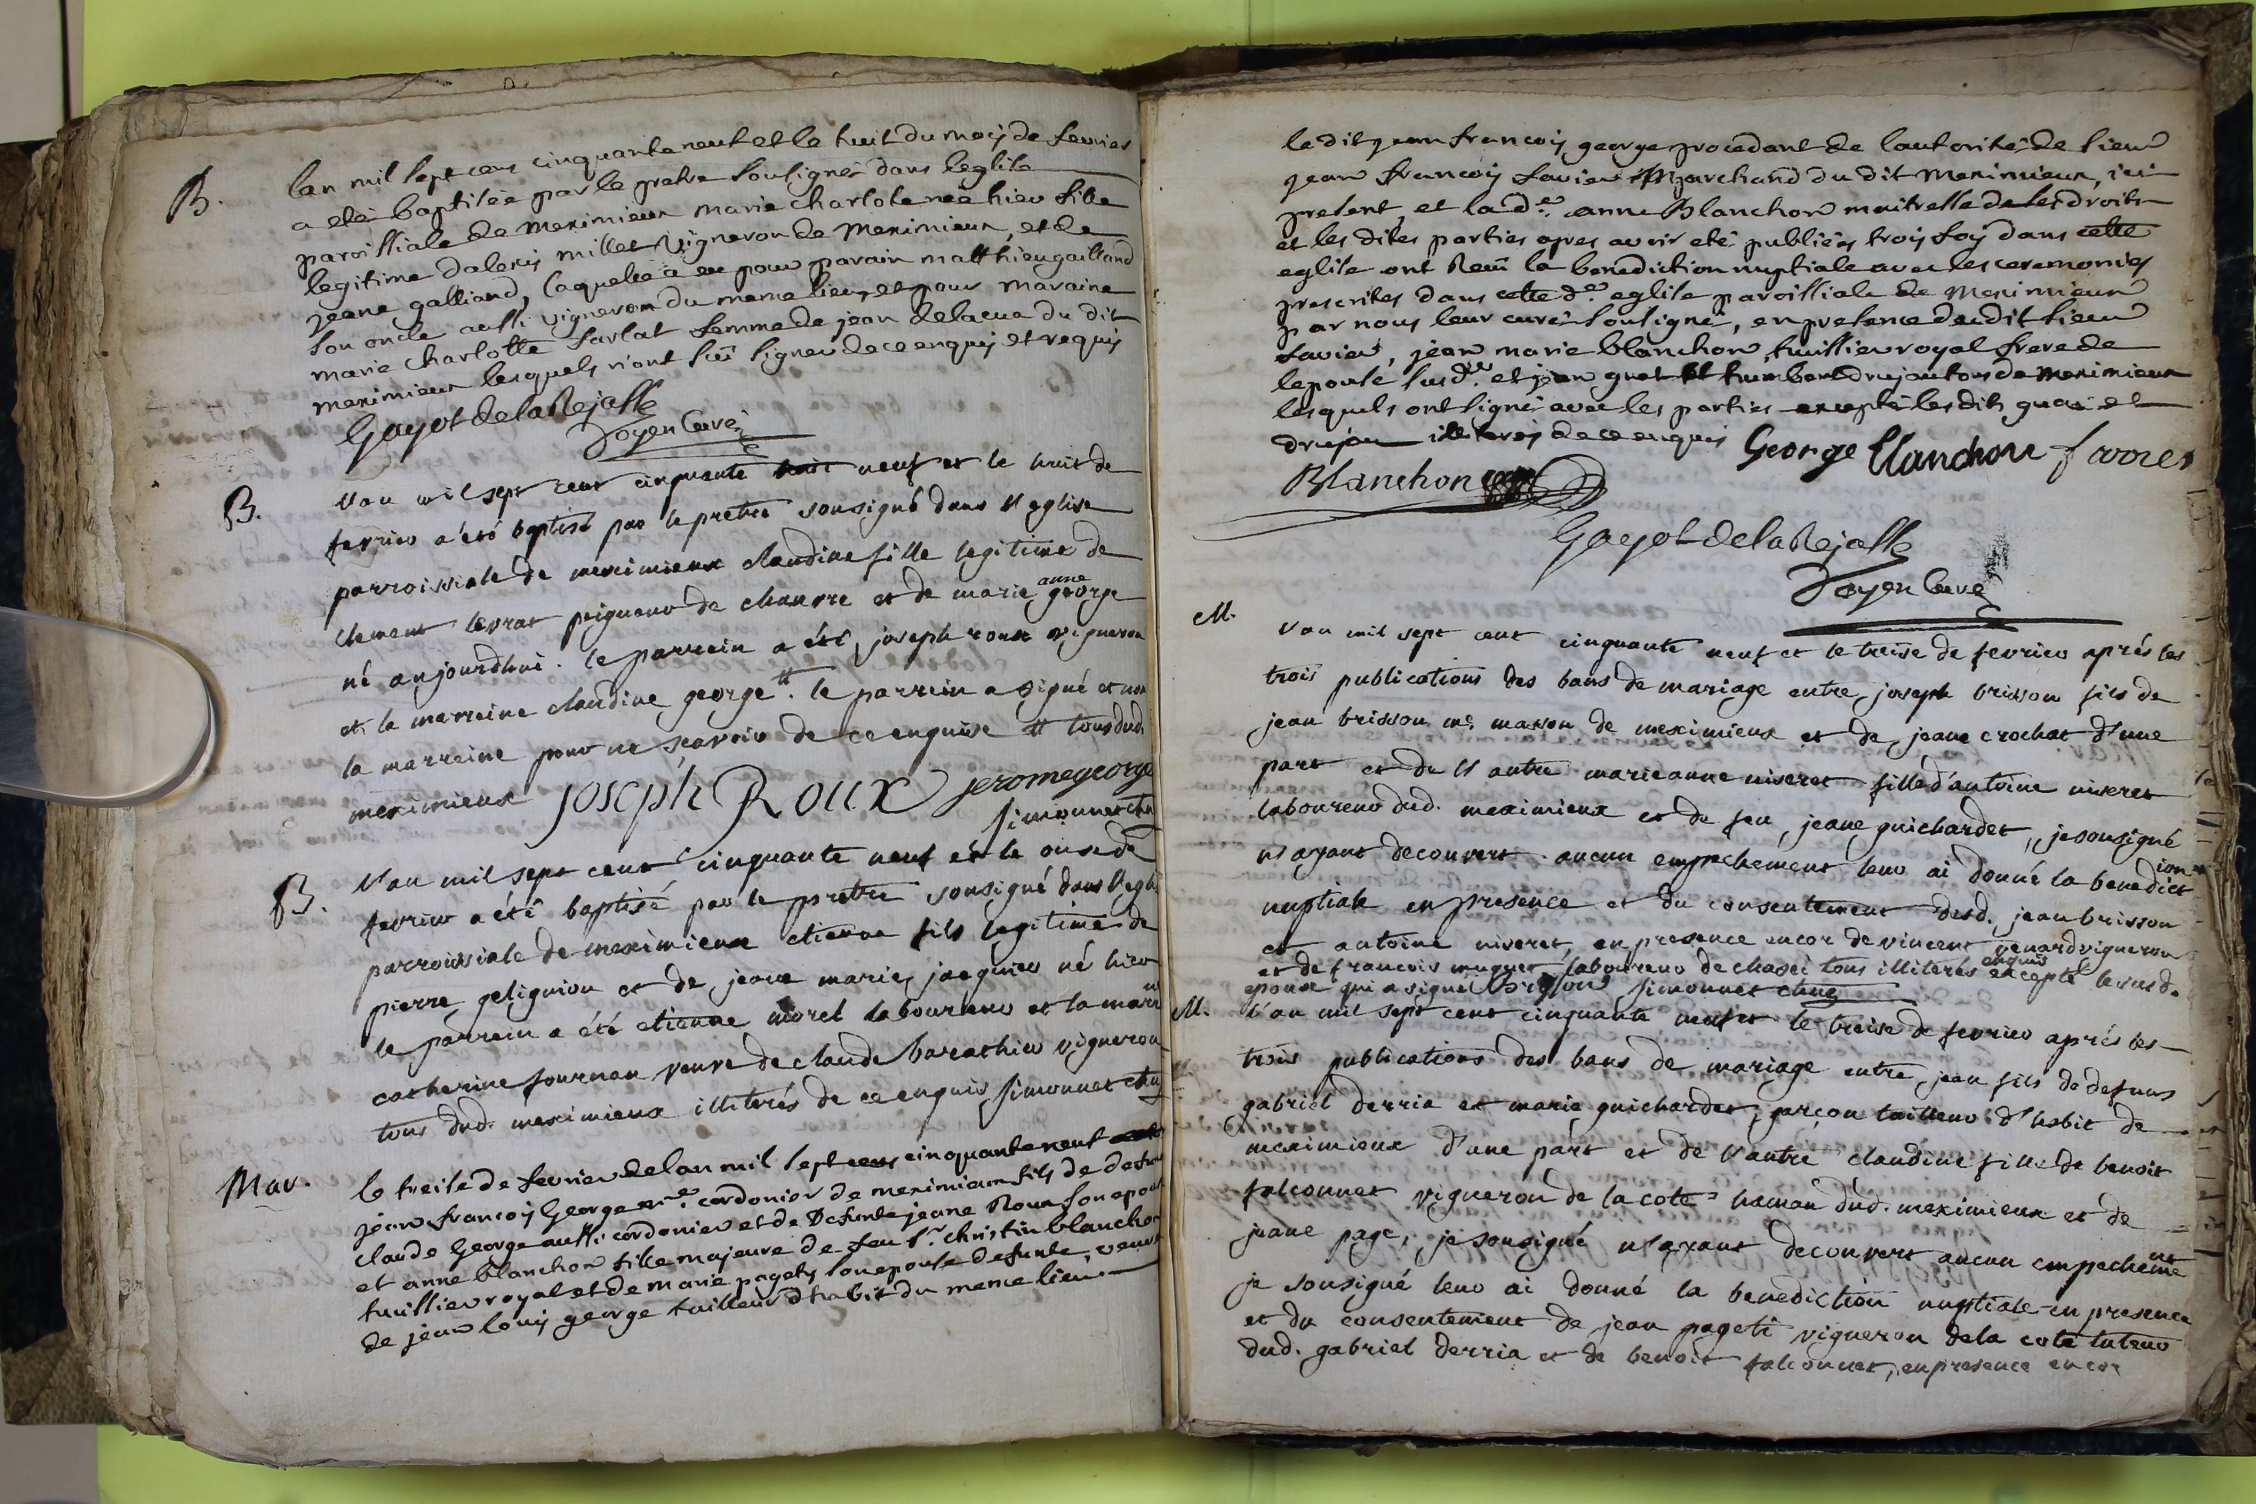 B.
lan mil sept cens cinquante neuf et le huit du moÿ de fevrier
a eté baptisée par le pretre soussigné dans leglise
paroissiale de Meximieux marie charlote née hier fille
legitime dalexis millet vigneron de Meximieux, et de
jeane galliand, laquelle a eu pour parain matthieu gailland
son oncle aussi vigneron du meme lieu, et pour maraine
marie charlotte sarlat femme de jean delacua du dit
meximieux lesquels n'ont sceu signer de ce enquis et requis
Gayot de la Rejasse
Doyen Curé
B.
l'an mil sept cent cinquante neuf et le huit de
fevrier a été baptisé par le pretre sousigné dans l'eglise
parroissiale de meximieux claudine fille legitime de
clement levrat peigneur de chanvre et de marie anne george
né aujourdhui. le parrein a été joseph roux vigneron
et la marreine claudine george #. le parrein a signé et non
la marreine pour ne sçavoir de ce enquise # tous dud.
meximieux joseph Roux jerome george
simonnet
B.
l'an mil sept cent cinquante neuf et le onse de
fevrier a été baptisé par le pretre sousigné dans l'egl
parroissiale de meximieux etienne fils legitime de
pierre geliguion et de jeane marie jacquier né hier
le parrein a été etienne morel laboureur et la marr
catherine fournau veuve de claude barathier vigneron
tous dud. meximieux illiterés de ce enquis simonnet
Mar.
le treise de fevrier de lan mil sept cens cinquante neuf
jean françoÿ George me cordonier de meximieux fils de defunt
claude George aussi cordonier et de Defunte jeane Roux son epou
et anne blanchon fille majeure de feu sr. christin blanchon
huissier royal et de marie pagets son epouse defunte, veuve
de jean louÿ george tailleur d'habit du meme lieu.
le dit jean françoÿ george procedant de lautorité de sieur
jean françoÿ favier Marchand du dit Meximieux, ici
present, et la de. anne Blanchon maitresse de ses droits
et les dites parties apres avoir eté publiéés troÿ foÿ dans cette
eglise ont Receu la benediction nuptiale avec les ceremonies
prescrites dans cette de. eglise paroissiale de Meximieux
par nous leur curé soussigné, en presence du dit sieur
favier, jean marie blanchon, huissier royal frere de
lepouse susde. et jean guat et humbert drujon tous de Meximieux
lesquels ont signé avec les parties excepté les dits guat et
drujon illiterés de ce enquis George blanchon favier
Blanchon
Gayot de la Rejasse
Doyen Curé
M.
l'an mil sept cent cinquante neuf et le treise de fevrier aprés les
trois publications des bans de mariage entre joseph brisson fils de
jean brisson me. masson de meximieux et de jeane crochat d'une
part et de l'autre marieanne niseret fille d'antoine niseret
laboureur dud. meximieux et de feu jeane guichardet, je sousigné
n'ayant decouvert aucun empechement leur ai donné la benediction
nuptiale en presence et du consentement desd. jean brisson
et antoine niseret, en presence encor de vincent venard vigneron
et de francois muguet laboureur de chasei tous illiterés enquis excepté le susd.
epoux qui a signé Brisson simonnet
M.
l'an mil sept cent cinquante neuf et le treise de fevrier aprés les
trois publications des bans de mariage entre jean fils de defunt
gabriel derria et marie guichardet, garçon tailleur d'habit de
meximieux d'une part et de l'autre claudine fille de benoit
falconnet vigneron de la cote haman dud. meximieux et de
jeane page, je sousigné n'ayant decouvert aucun empechement
je sousigné leur ai donné la benediction nuptiale en presence
et du consentement de jean pageti vigneron de la cote tuteur
dud. gabriel derria et de benoit falconnet, en presence encor